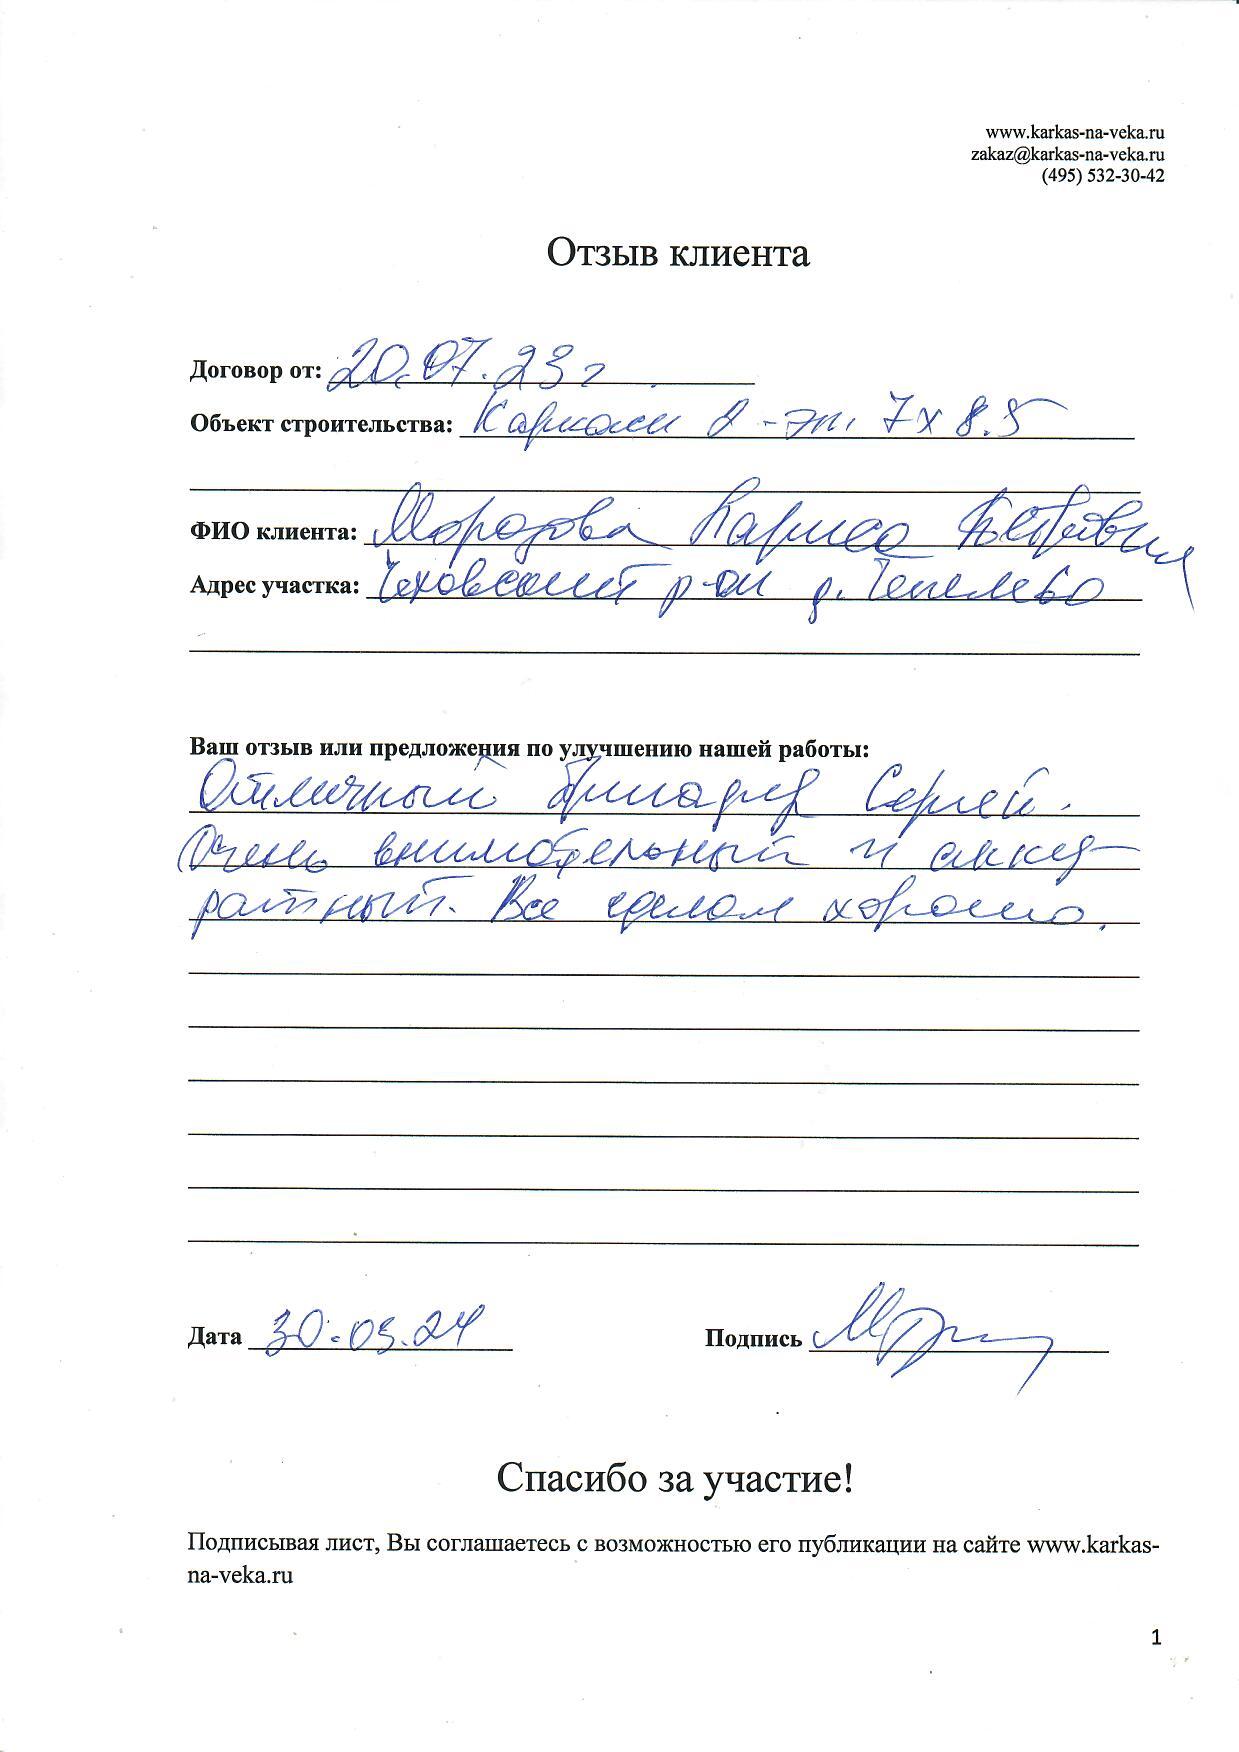 www.karkas-na-veka.ru
zakaz@karkas-na-veka.ru
(495) 532-30-42
Отзыв клиента
Договор от: 20.07.23 г
Объект строительства: 2-эт. 7х8.5
ФИО клиента: Морозова Лариса
Адрес участка: Чеховский р-он д. Чепелево
Ваш отзыв или предложения по улучшению нашей работы:
Отличный бригадир Сергей.
Очень внимательный и акку-
ратный. Все сделал хорошо.
Дата 30.03.24 Подпись
Спасибо за участие!
Подписывая лист, Вы соглашаетесь с возможностью его публикации на сайте www.karkas-
na-veka.ru
1